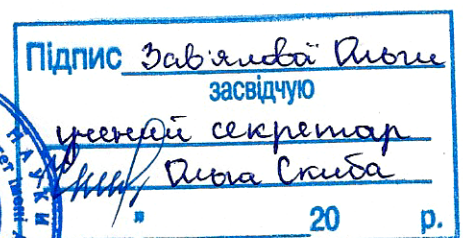 Підпис Зав'ялової Ольги
засвідчую
учений секретар
Ольга Скиба
" 20 р.
НАУКИ